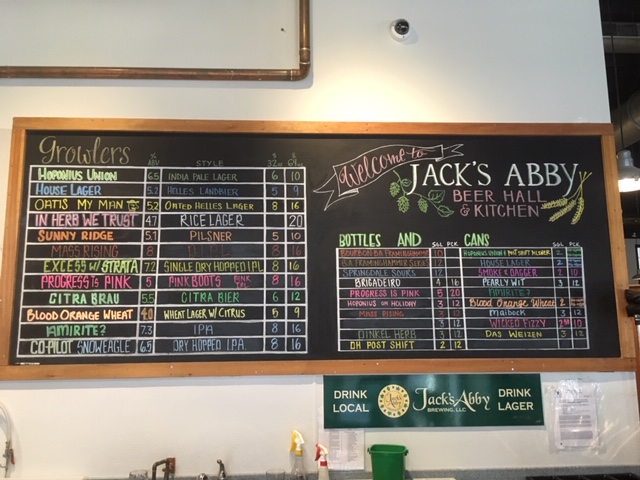 Growlers
% ABV STYLE $ 32oz $ 64oz
HOPONIUS UNION 6.5 INDIA PALE LAGER 6 10
HOUSE LAGER 5.2 HELLES LANDBIER 5 9
OATIS MY MAN 5.2 OATED HELLES LAGER 8 16
IN HERB WE TRUST 4.7 RICE LAGER 20
SUNNY RIDGE 5.1 PILSNER 5 10
MASS RISING 8
EXCESS W/ STRATA 7.2 SINGLE DRY HOPPED IPL 8 16
PROGRESS IS PINK 5 PINK BOOTS IPL 8 16
CITRA BRAU 5.5 CITRA BIER 6 12
BLOOD ORANGE WHEAT 4.0 WHEAT LAGER W/ CITRUS 5 9
AMIRITE? 7.3 IPA 8 16
CO-PILOT SNOWEAGLE 6.5 DRY HOPPED I.P.A. 8 16
Welcome to
JACK'S ABBY
BEER HALL
& KITCHEN
BOTTLES AND SGL PCK CANS SGL PCK
BOURBON BA FRAMINGHAMMER 10 HOPONIUS UNION & POST SHIFT PILSNER 2
B.A FRAMINGHAMMER SERIES 12 HOUSE LAGER 2
SPRINGDALE SOURS 12 SMOKE & DAGGER 2 10
BRIGADEIRO 4 16 PEARLY WIT 3 12
PROGRESS IS PINK 5 20 AMIRITE?
HOPONIUS ON HOLIDAY 3 12 BLOOD ORANGE WHEAT 2
MASS RISING 3 12 MAIBOCK 3 12
3 12 WICKED FIZZY 10
DINKEL HERB 3 12 DAS WEIZEN 3 12
OH POST SHIFT 2 12
DRINK LOCAL Jack's Abby BREWING, LLC DRINK LAGER